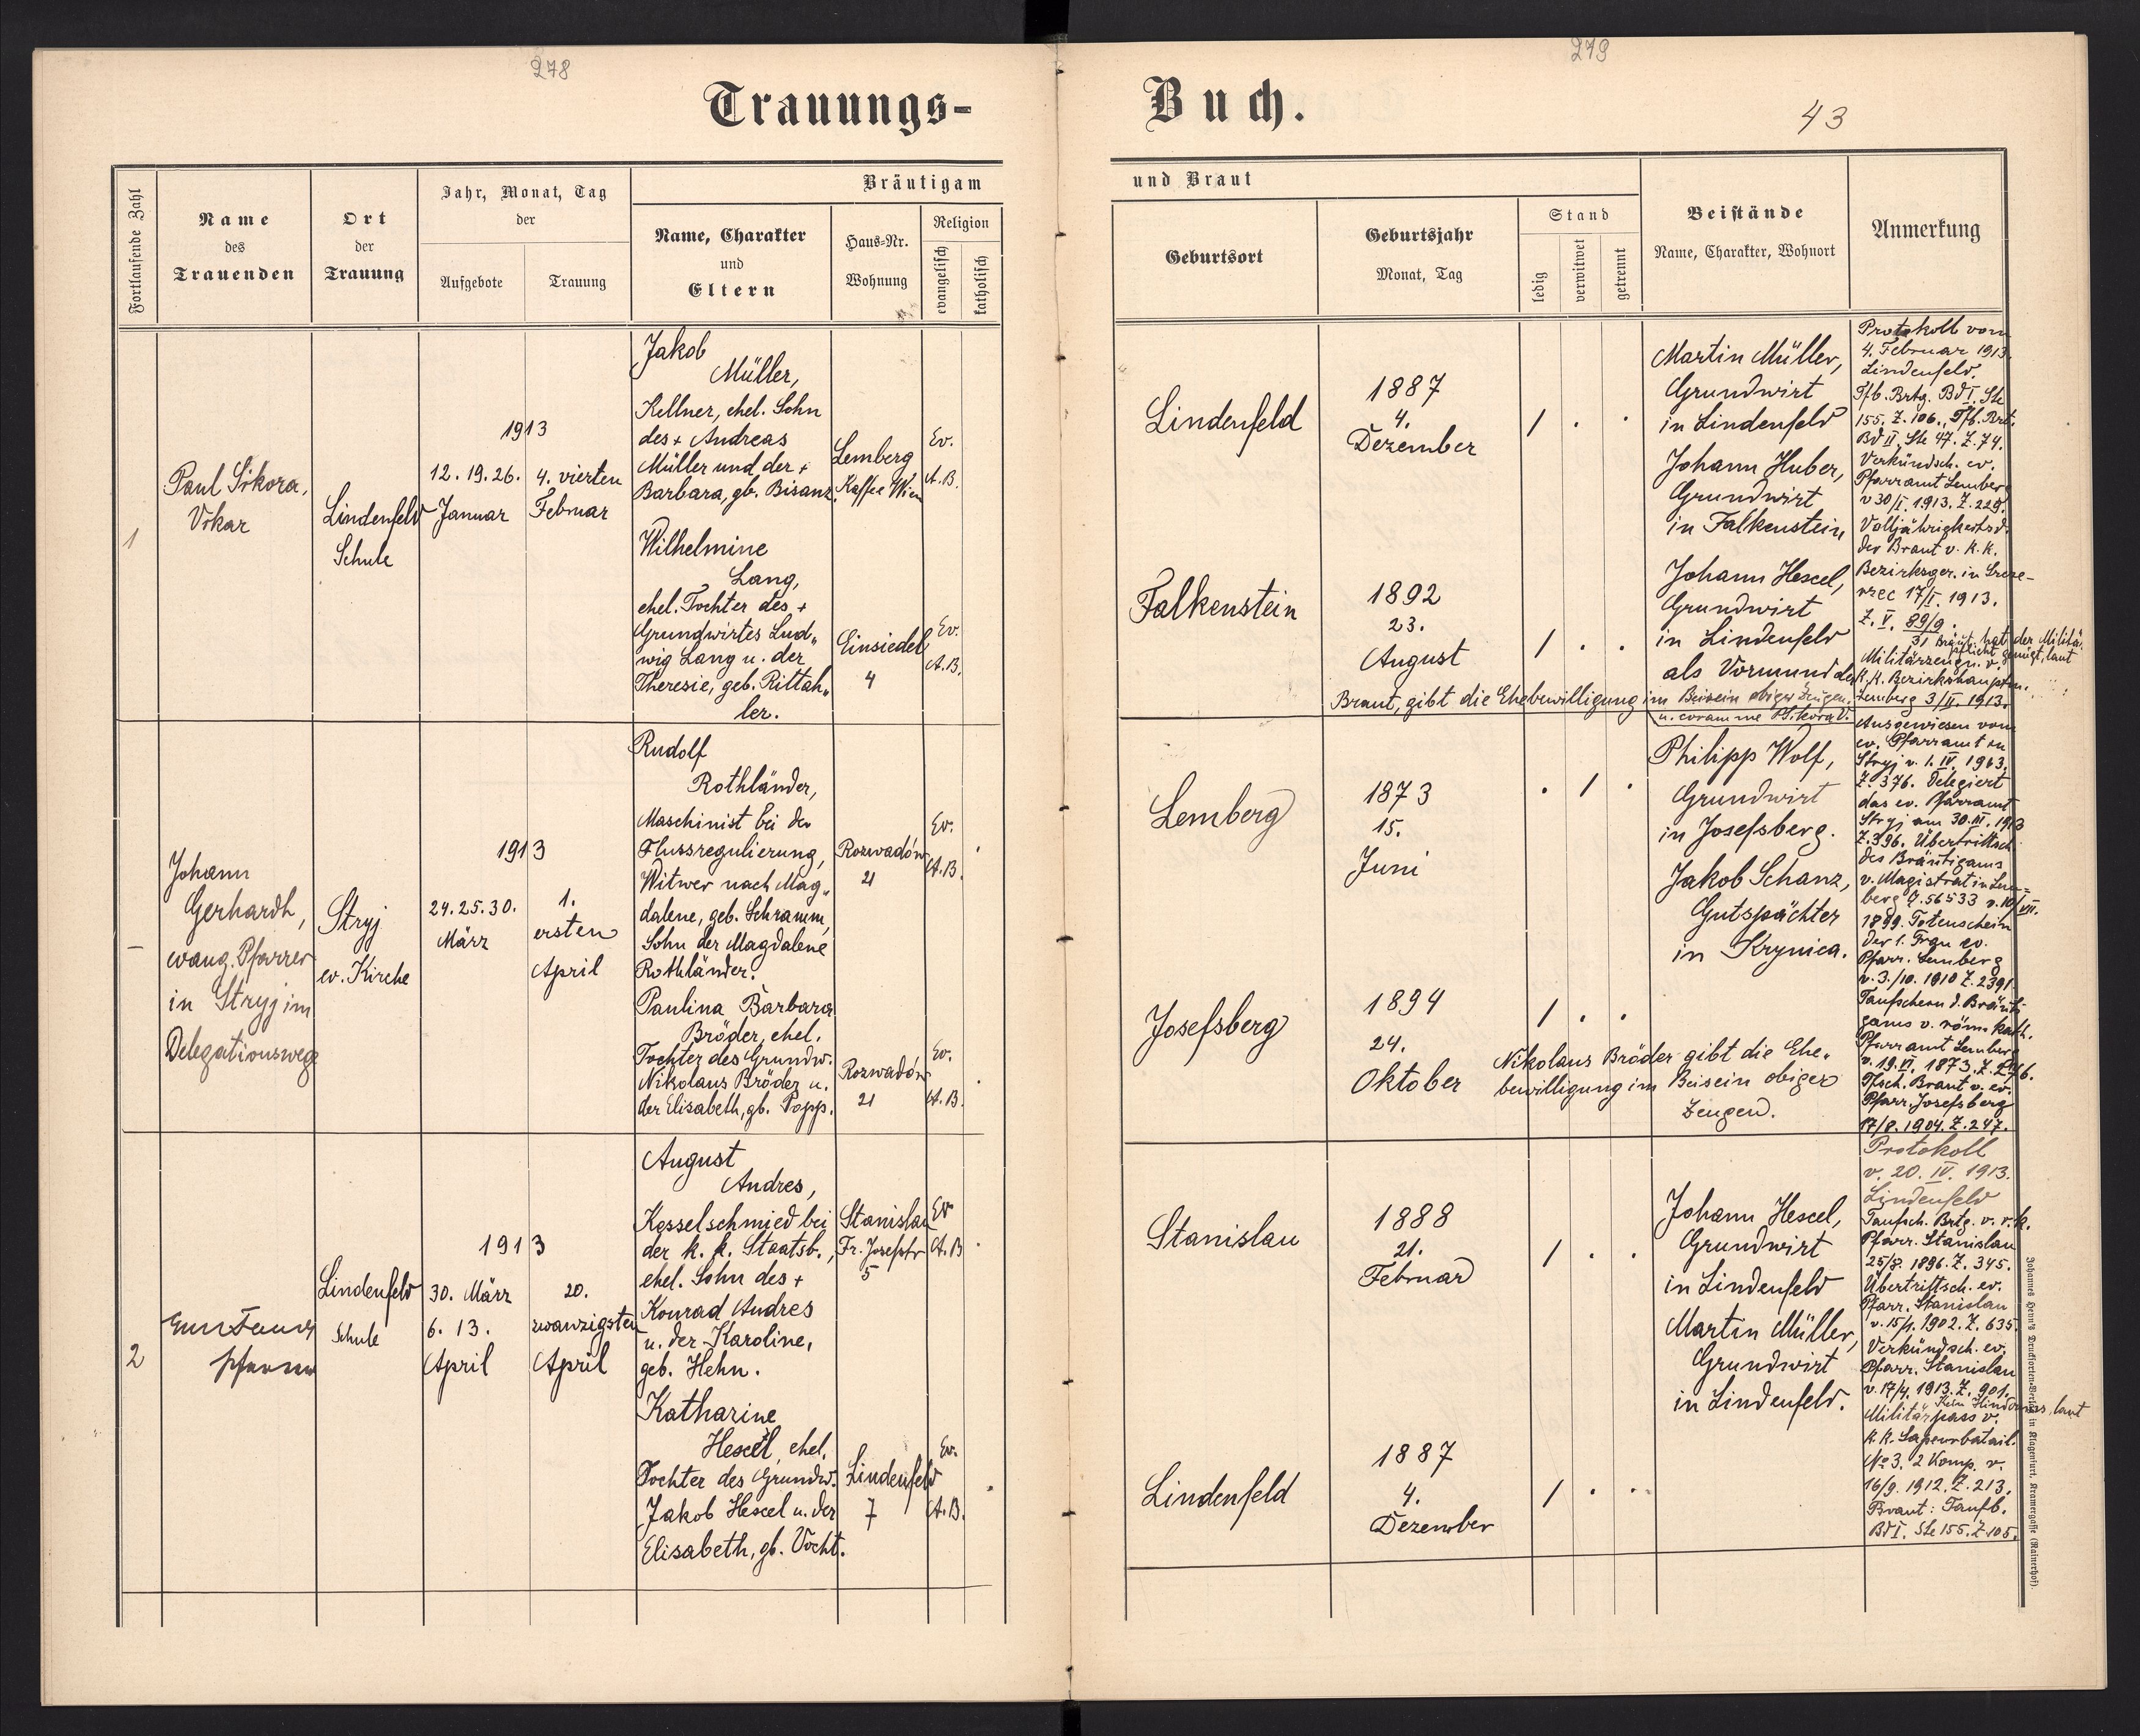 278
279
Trauungs-
Buch.
43
Fortlaufende Zahl
Name
des
Trauenden
Ort
der
Trauung
Jahr, Monat, Tag
der
Aufgebote
Trauung
Bräutigam
Name, Charakter
und
Eltern
Haus-Nr.
Wohnung
Religion
evangelisch
katholisch
und Braut
Geburtsort
Geburtsjahr
Monat, Tag
Stand
ledig
verwitwet
getrennt
Beistände
Name, Charakter, Wohnort
Anmerkung
1
Paul Sikora,
Vikar
Lindenfeld
Schule
1913
12. 19. 26.
Januar
4. vierten
Februar
Jakob
Müller,
Kellner, ehel. Sohn
des + Andreas
Müller und der +
Barbara, gb. Bisanz.
Lemberg
Kaffee Wien
Ev.
A.B.
Wilhelmine
Lang,
ehel. Tochter des +
Grundwirtes Lud„
wig Lang u. der
Theresie, geb. Rittah„
ler.
Einsiedel
4
Ev.
A.B.
Lindenfeld
1887
4.
Dezember
/ . .
Falkenstein
1892
23.
August
/ . .
Martin Müller,
Grundwirt
in Lindenfeld
Johann Huber,
Grundwirt
in Falkenstein,
Johann Hescel,
Grundwirt
in Lindenfeld
als Vormund der
Braut, gibt die Ehebewilligung im Beisein obiger Zeugen.
Protokoll vom
4. Februar 1913
Lindenfeld.
Tfb. Brtg. Bd I. Ste
155. Z. 106., Tfb. Brt.
Bd II. Ste 47. Z. 74.
Verkündsch. ev.
Pfarramt Lemberg
v 30/I. 1913. Z. 229.
Volljährigkeitsd.
der Braut v. k. k.
Bezirksger. in Szcze-
rzec 17/I. 1913.
Z. V. 89/9.
31 Bräut. hat der Militär-
pflicht genügt, laut
Militärzeugn. v.
k. k. Bezirkshauptm.
Lemberg 3/II. 1913.
Johann
Gerhardt,
evang. Pfarrer
in Stryj im
Delegationswege
Stryj
ev. Kirche
1913
24. 25. 30.
März
1.
ersten
April
Rudolf
Rothländer,
Maschinist bei der
Flussregulierung,
Witwer nach Mag„
dalene, geb. Schramm,
Sohn der Magdalene
Rothländer.
Rozwadów
21
Ev.
A.B.
Paulina Barbara
Bröder, ehel.
Tochter des Grundw.
Nikolaus Bröder u.
der Elisabeth, gb. Popp.
Rozwadów
21
Ev.
A.B.
Lemberg
1873
15.
Juni
. / .
Josefsberg
1894
24.
Oktober
/ . .
Philipp Wolf,
Grundwirt
in Josefsberg.
Jakob Schanz,
Gutspächter
in Krynica.
Nikolaus Bröder gibt die Ehe„
bewilligung im Beisein obiger
Zeugen.
Ausgewiesen vom
ev. Pfarramt in
Stryj v. 1. IV. 1913.
Z. 376. Delegiert
das ev. Pfarramt
Stryj am 30. III. 1913
Z. 396. Übertrittsch.
des Bräutigams
v. Magistrat in Lem=
berg Z. 56533 v. 10/VII.
1899. Totenschein
der 1. Frau ev.
Pfarr. Lemberg
v. 3./10. 1910 Z. 2391
Taufschein d. Bräuti-
gams v. röm. kath.
Pfarramt Lemberg
v. 19. VI. 1873. Z.
Tfsch. Braut v. ev.
Pfarr. Josefsberg
17/8. 1904. Z. 247.
2
Pfarrer
Lindenfeld
Schule
1913
30. März
6. 13.
April
20.
zwanzigsten
April
August
Andres,
Kesselschmied bei
der k. k. Staatsb.,
ehel. Sohn des +
Konrad Andres
u. der Karoline,
geb. Hehn.
Stanislau
Fr. Josephstr
5
Ev
A.B
Katharine
Hescel, ehel.
Tochter des Grundw.
Jakob Hescel u. der
Elisabeth, gb. Vocht.
Lindenfeld
7
Ev.
A.B.
Stanislau
1888
21.
Februar
/ . .
Lindenfeld
1887
4.
Dezember
/ . .
Johann Hescel,
Grundwirt
in Lindenfeld
Martin Müller,
Grundwirt
in Lindenfeld.
Protokoll
v. 20. IV. 1913.
Lindenfeld
Taufsch. Brtg. v. r. k.
Pfarr. Stanislau
25/8. 1896. Z. 345.
Übertrittsch. ev.
Pfarr. Stanislau
v. 15/1. 1902. Z. 635.
Verkündsch. ev.
Pfarr. Stanislau
v. 17/4. 1913. Z. 901.
Kein Hindernis, laut
Militärpass v.
k. k. Sapeurbatail.
No 3. 2 Komp. v.
16/9. 1912. Z. 213.
Braut: Taufb.
Bd I. Ste 155. Z 105.
Johannes Heyn's Drucksorten-Verlag in Klagenfurt, Kramergasse (Rainerhof).